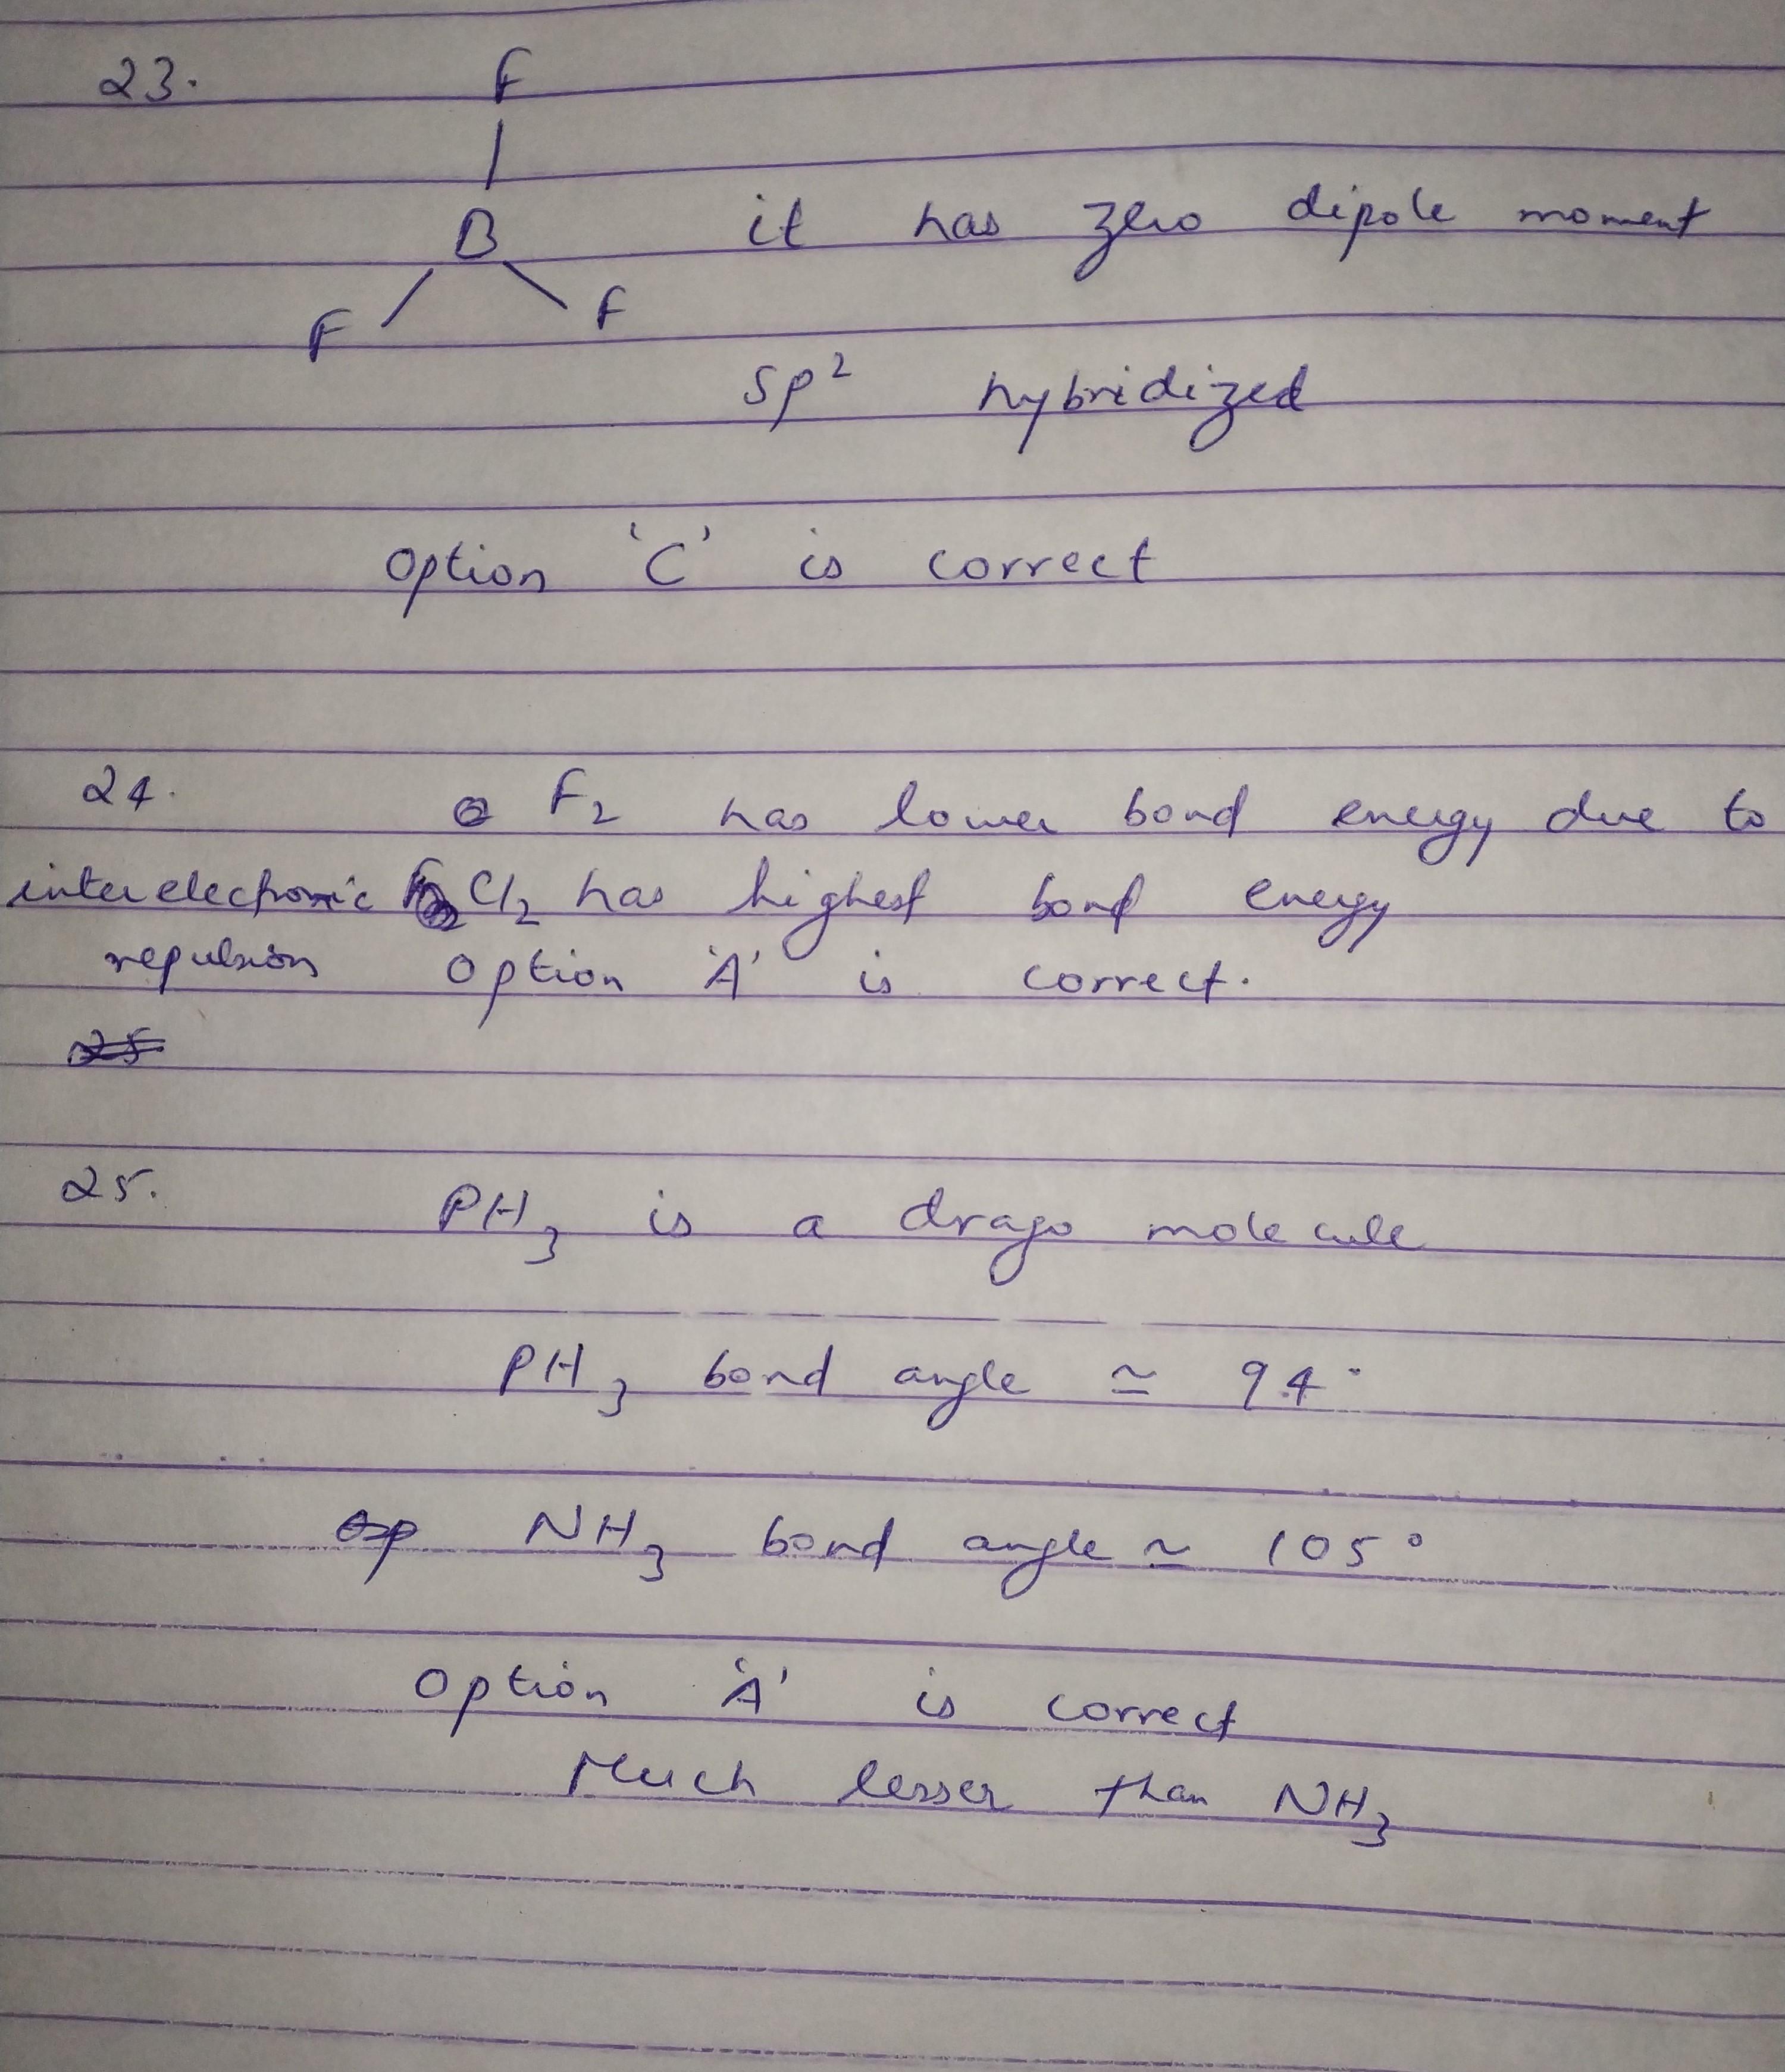 23.
F
B it has zero dipole moment
F F
sp² hybridized
option 'C' is correct
24. F₂ has lower bond energy due to
interelectronic Cl₂ has highest bond energy
repulsion option 'A' is correct.
25
25. PH₃ is a drago molecule
PH₃ bond angle ≃ 94°
NH₃ bond angle ≃ 105°
option 'A' is correct
Much lesser than NH₃